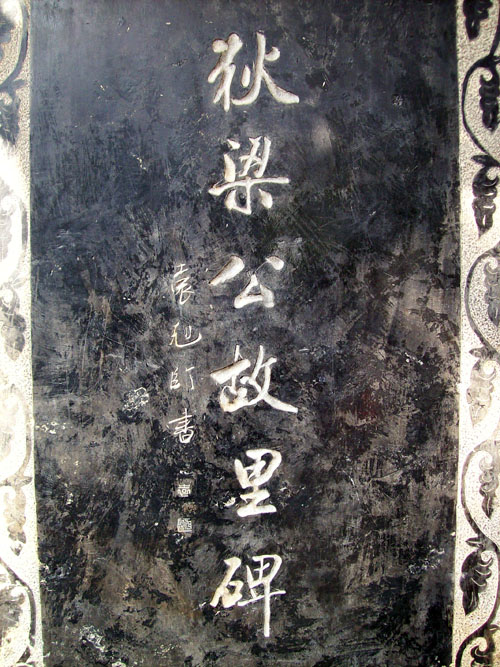 狄梁公故里碑
袁旭臨書